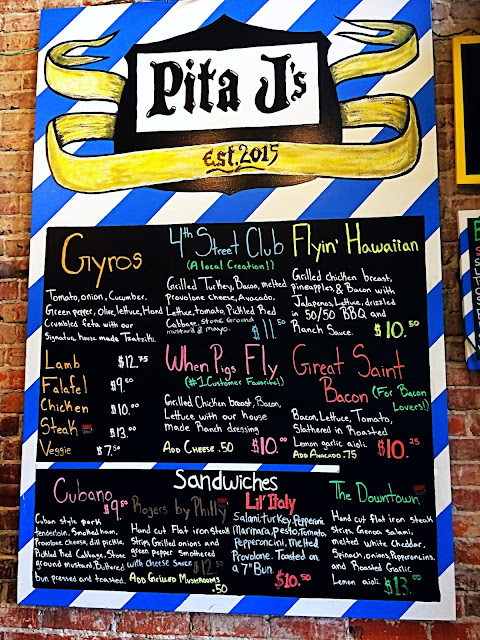 Pita J's
Est. 2015
Gyros
Tomato, onion, Cucumber.
Green pepper, olive, lettuce, Hand
Crumbled feta with our
Signature house made Tzatziki
Lamb $12.75
Falafel $9.50
Chicken $10.00
Steak $13.00
Veggie $7.50
4th Street Club
(A local Creation!)
Grilled Turkey, Bacon, melted
provolone cheese, Avocado,
Lettuce, tomato, Pickled Red
Cabbage, Stone Ground
mustard & mayo. $11.50
Flyin' Hawaiian
Grilled chicken breast,
pineapples & Bacon with
Jalapenos, Lettuce, drizzled
in 50/50 BBQ and
Ranch Sauce. $10.50
When Pigs Fly
(#1 Customer Favorite!)
Grilled Chicken breast, Bacon,
Lettuce with our house
made Ranch dressing
ADD CHEESE .50 $10.00
Great Saint
Bacon (For Bacon
Lovers!)
Bacon, Lettuce, Tomato,
Slathered in Roasted
Lemon garlic aioli.
ADD AVACADO .75 $10.25
Sandwiches
Cubano $9.50
Cuban style pork
tenderloin, Smoked ham,
Provolone cheese, dill pickle,
Pickled Red Cabbage, Stone
ground mustard, Buttered
bun pressed and toasted.
Rogers by Philly
Hand cut Flat iron steak
Strips, Grilled onions and
green pepper smothered
with cheese sauce $12.50
ADD GRILLED MUSHROOMS
.50
Lil' Italy
Salami, Turkey, Pepperoni,
Marinara, Pesto, Tomato,
Pepperoncini, melted
Provolone. Toasted on
a 7" Bun.
$10.50
The Downtown
Hand cut flat iron steak
Strips, Genoa salami,
melted white cheddar,
Spinach, onions, Pepperoncinis,
and Roasted Garlic
Lemon aioli. $13.00